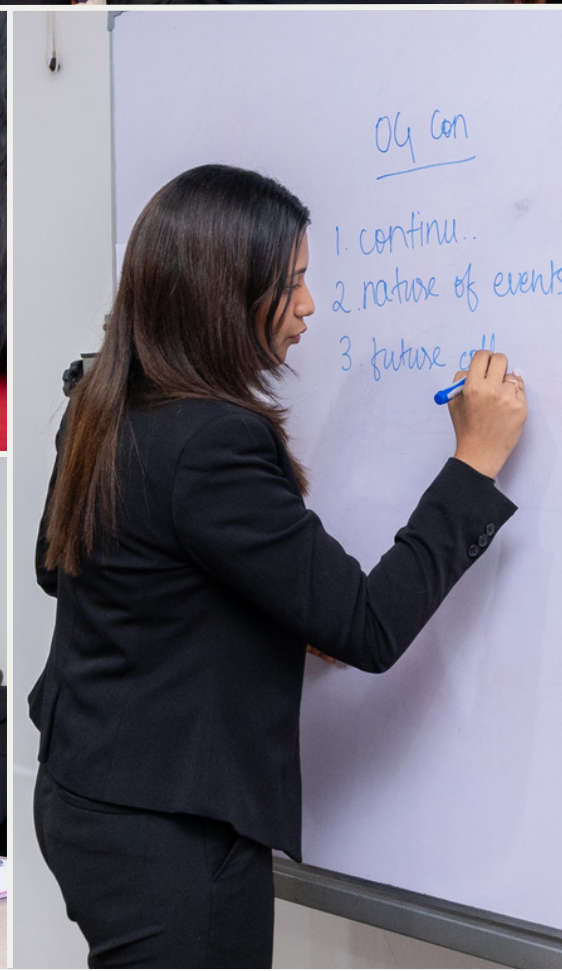 OG Con
1. continu..
2. nature of events
3. future